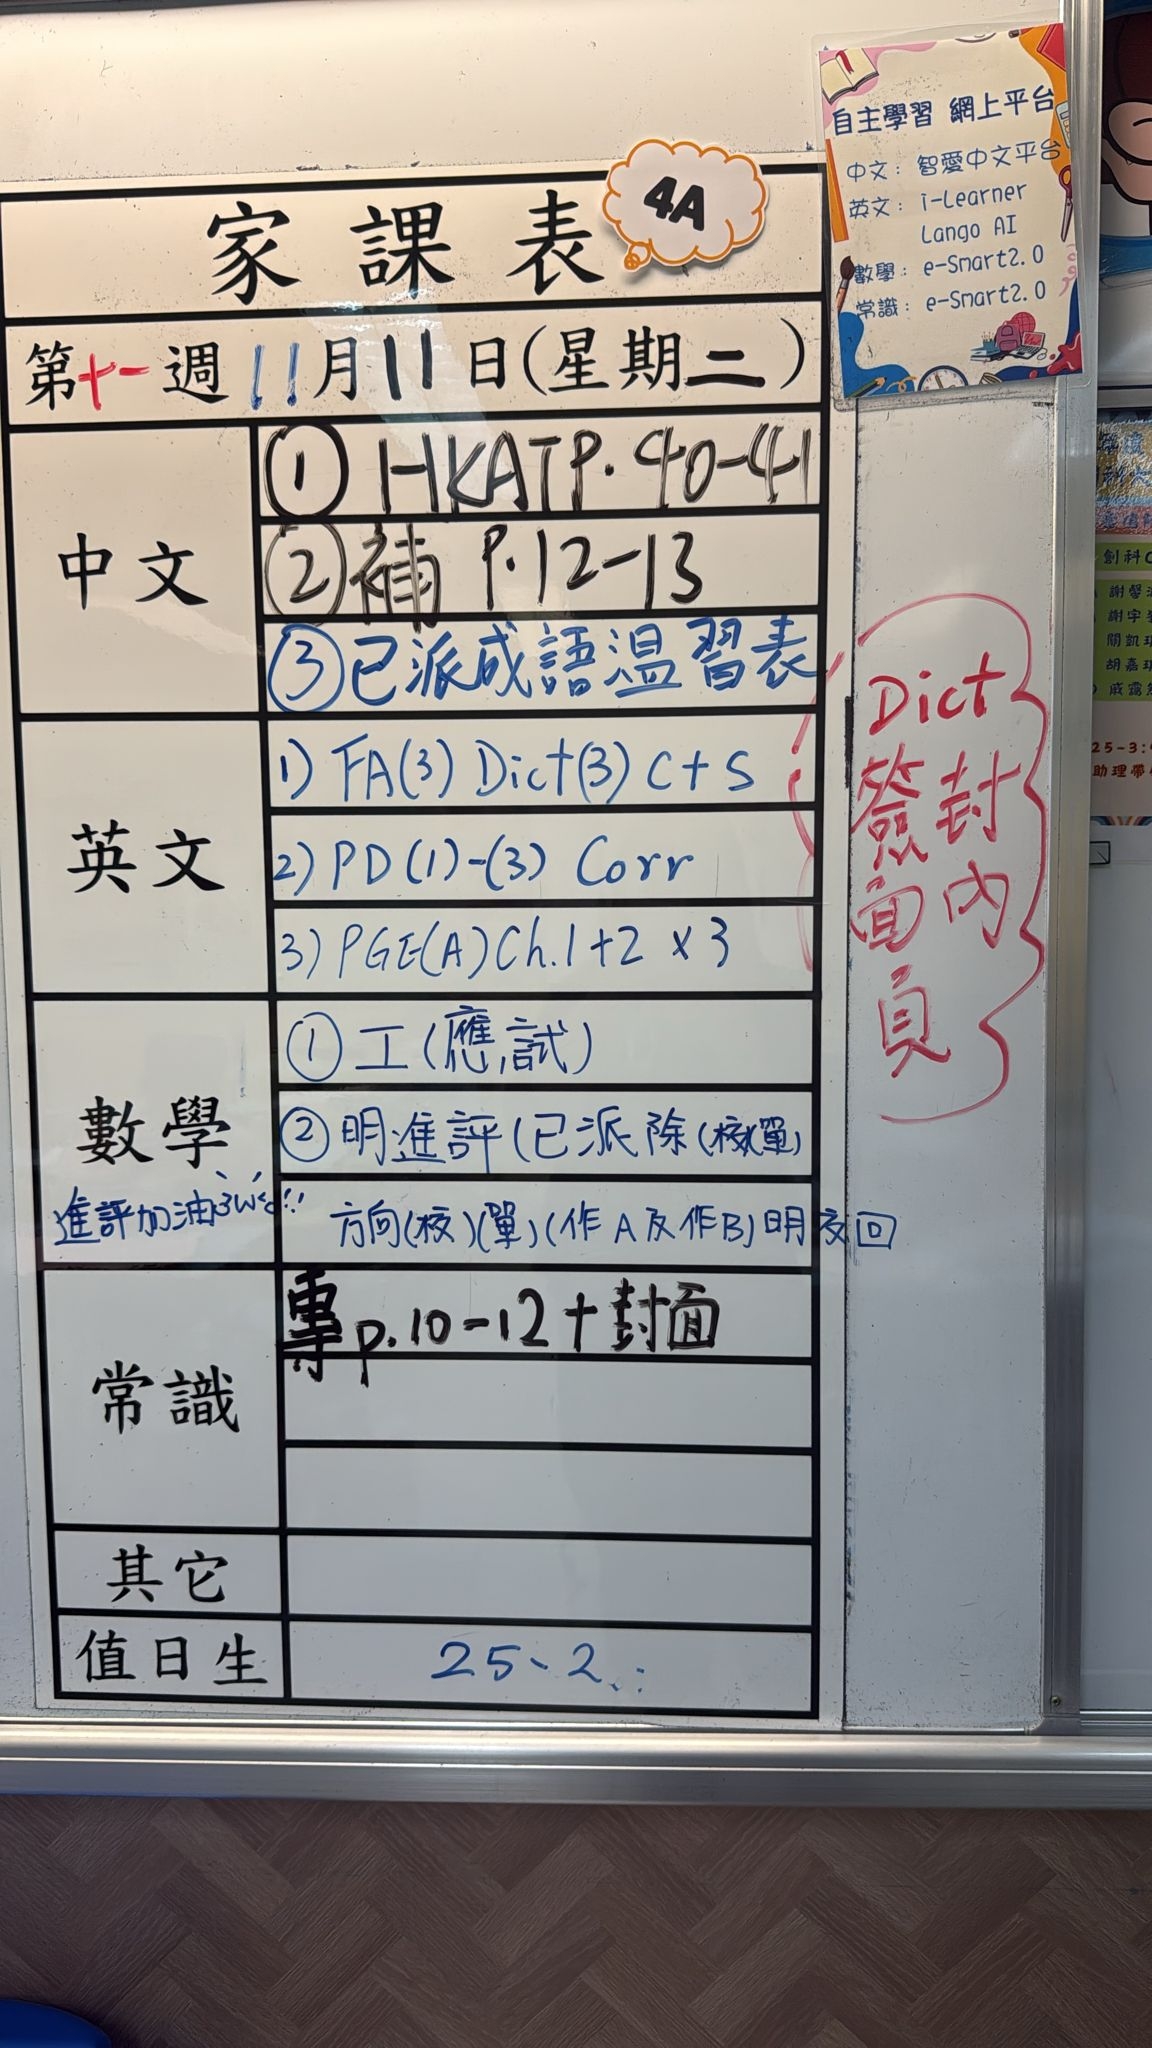 自主學習 網上平台
中文：智愛中文平台
英文：i-Learner
Lango AI
數學：e-Smart2.0
常識：e-Smart2.0
家課表
4A
第十一週 11月11日(星期二)
中文
① HKAT P.40-41
② 補 P.12-13
③ 已派成語溫習表
英文
1) FA(3) Dict(3) C+S
2) PD(1)-(3) Corr
3) PGE(A) Ch.1+2 x 3
Dict
簽封
面內
頁
數學
進評加油
① 工(應試)
② 明進評(已派除(校)(單)
方向(校)(單)(作A及作B)明交回
常識
專 p.10-12+封面
其它
值日生
25、2
創科
25-3:
助理帶